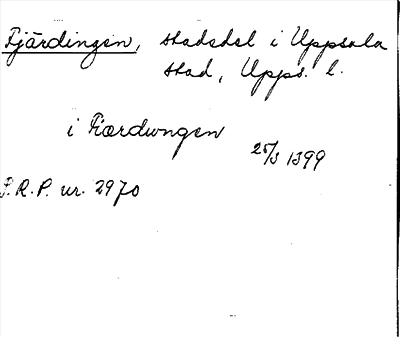 Fjärdingen, stadsdel i Uppsala
stad, Upps. l.
i Fiærdungen
25/3 1399
S.R.P. nr. 2970